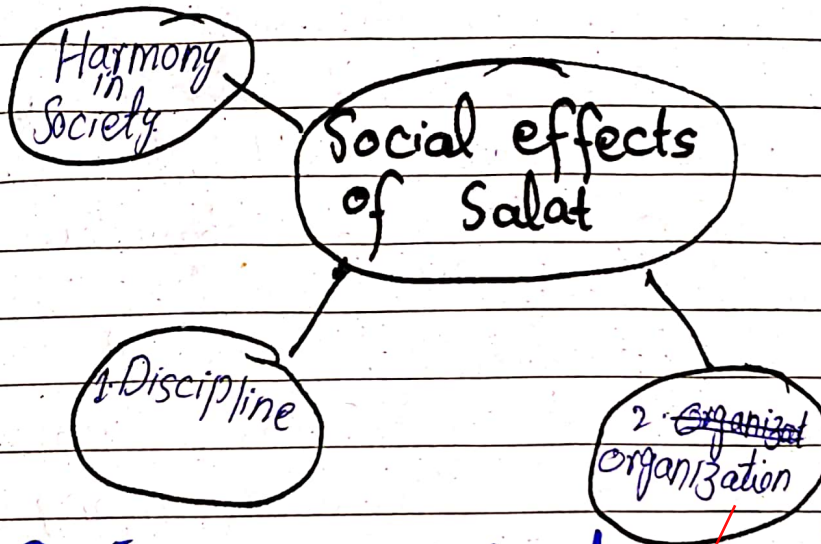 Harmony
in
Society.
Social effects
of Salat
1. Discipline
2. organizat
organization